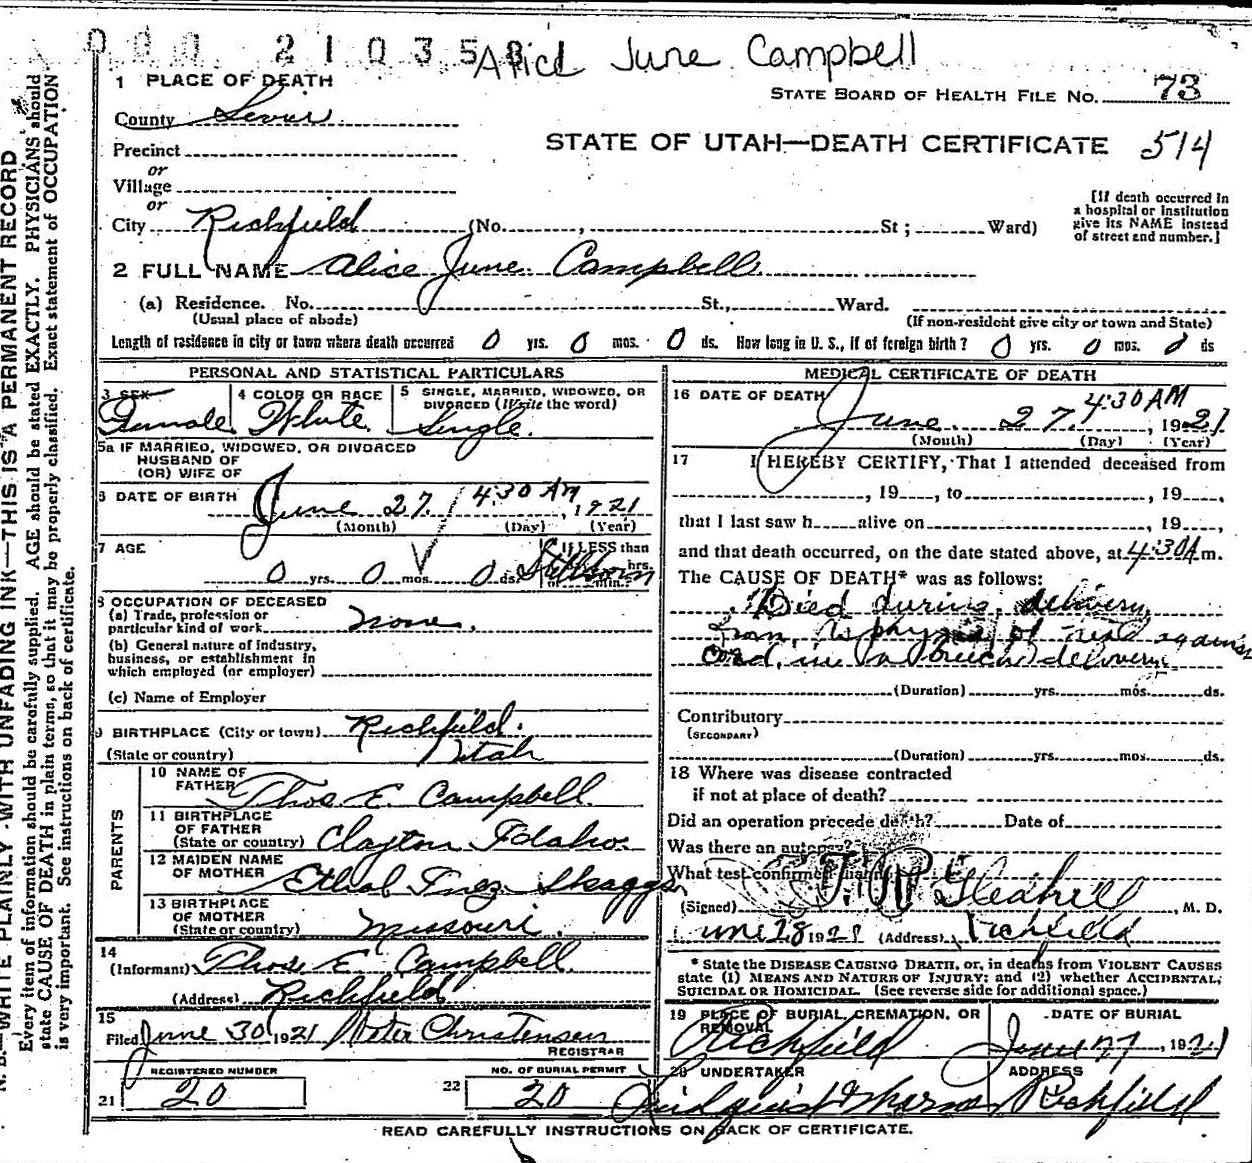 000 210358 Alice June Campbell
1 PLACE OF DEATH
STATE BOARD OF HEALTH FILE NO. 73
County Sevier
STATE OF UTAH—DEATH CERTIFICATE 514
Precinct
or
Village
or
City Richfield (No. , St ; Ward)
[If death occurred in
a hospital or institution
give its NAME instead
of street and number.]
2 FULL NAME Alice June Campbell
(a) Residence. No. St., Ward.
(Usual place of abode) (If non-resident give city or town and State)
Length of residence in city or town where death occurred 0 yrs. 0 mos. 0 ds. How long in U. S., if of foreign birth? 0 yrs. 0 mos. 0 ds
PERSONAL AND STATISTICAL PARTICULARS
3 SEX Female 4 COLOR OR RACE White 5 SINGLE, MARRIED, WIDOWED, OR DIVORCED (Write the word) Single
5a IF MARRIED, WIDOWED, OR DIVORCED
HUSBAND OF
(OR) WIFE OF
6 DATE OF BIRTH June 27 4:30 AM, 1921
(Month) (Day) (Year)
7 AGE If LESS than
0 yrs. 0 mos. 0 ds. Stillborn hrs. or min.
8 OCCUPATION OF DECEASED
(a) Trade, profession or
particular kind of work none.
(b) General nature of industry,
business, or establishment in
which employed (or employer)
(c) Name of Employer
9 BIRTHPLACE (City or town) Richfield.
(State or country) Utah
PARENTS
10 NAME OF
FATHER Thos E. Campbell.
11 BIRTHPLACE
OF FATHER
(State or country) Clayton Idaho.
12 MAIDEN NAME
OF MOTHER Ethal Inez Skaggs
13 BIRTHPLACE
OF MOTHER
(State or country) Missouri.
14
(Informant) Thos E Campbell.
(Address) Richfield
15
Filed June 30 1921 Peter Christensen
REGISTRAR
REGISTERED NUMBER
21 20
NO. OF BURIAL PERMIT
22 20
MEDICAL CERTIFICATE OF DEATH
16 DATE OF DEATH 4:30 AM
June 27, 1921
(Month) (Day) (Year)
17 I HEREBY CERTIFY, That I attended deceased from
, 19 , to , 19 ,
that I last saw h alive on , 19 ,
and that death occurred, on the date stated above, at 4:30 A m.
The CAUSE OF DEATH* was as follows:
Died during delivery
from Asphyxia of head against
cord, in a breech delivery
(Duration) yrs. mos. ds.
Contributory
(SECONDARY)
(Duration) yrs. mos. ds.
18 Where was disease contracted
if not at place of death?
Did an operation precede death? Date of
Was there an autopsy?
What test confirmed diagnosis
(Signed) T. R. Gledhill, M. D.
June 28 1921 (Address) Richfield
* State the DISEASE CAUSING DEATH, or, in deaths from VIOLENT CAUSES
state (1) MEANS AND NATURE OF INJURY; and (2) whether ACCIDENTAL,
SUICIDAL OR HOMICIDAL. (See reverse side for additional space.)
19 PLACE OF BURIAL, CREMATION, OR REMOVAL
Richfield
DATE OF BURIAL
June 27, 1921
20 UNDERTAKER
ADDRESS
Richfield
READ CAREFULLY INSTRUCTIONS ON BACK OF CERTIFICATE.
N. B.—WRITE PLAINLY WITH UNFADING INK—THIS IS A PERMANENT RECORD
Every item of information should be carefully supplied. AGE should be stated EXACTLY. PHYSICIANS should
state CAUSE OF DEATH in plain terms, so that it may be properly classified. Exact statement of OCCUPATION
is very important. See instructions on back of certificate.